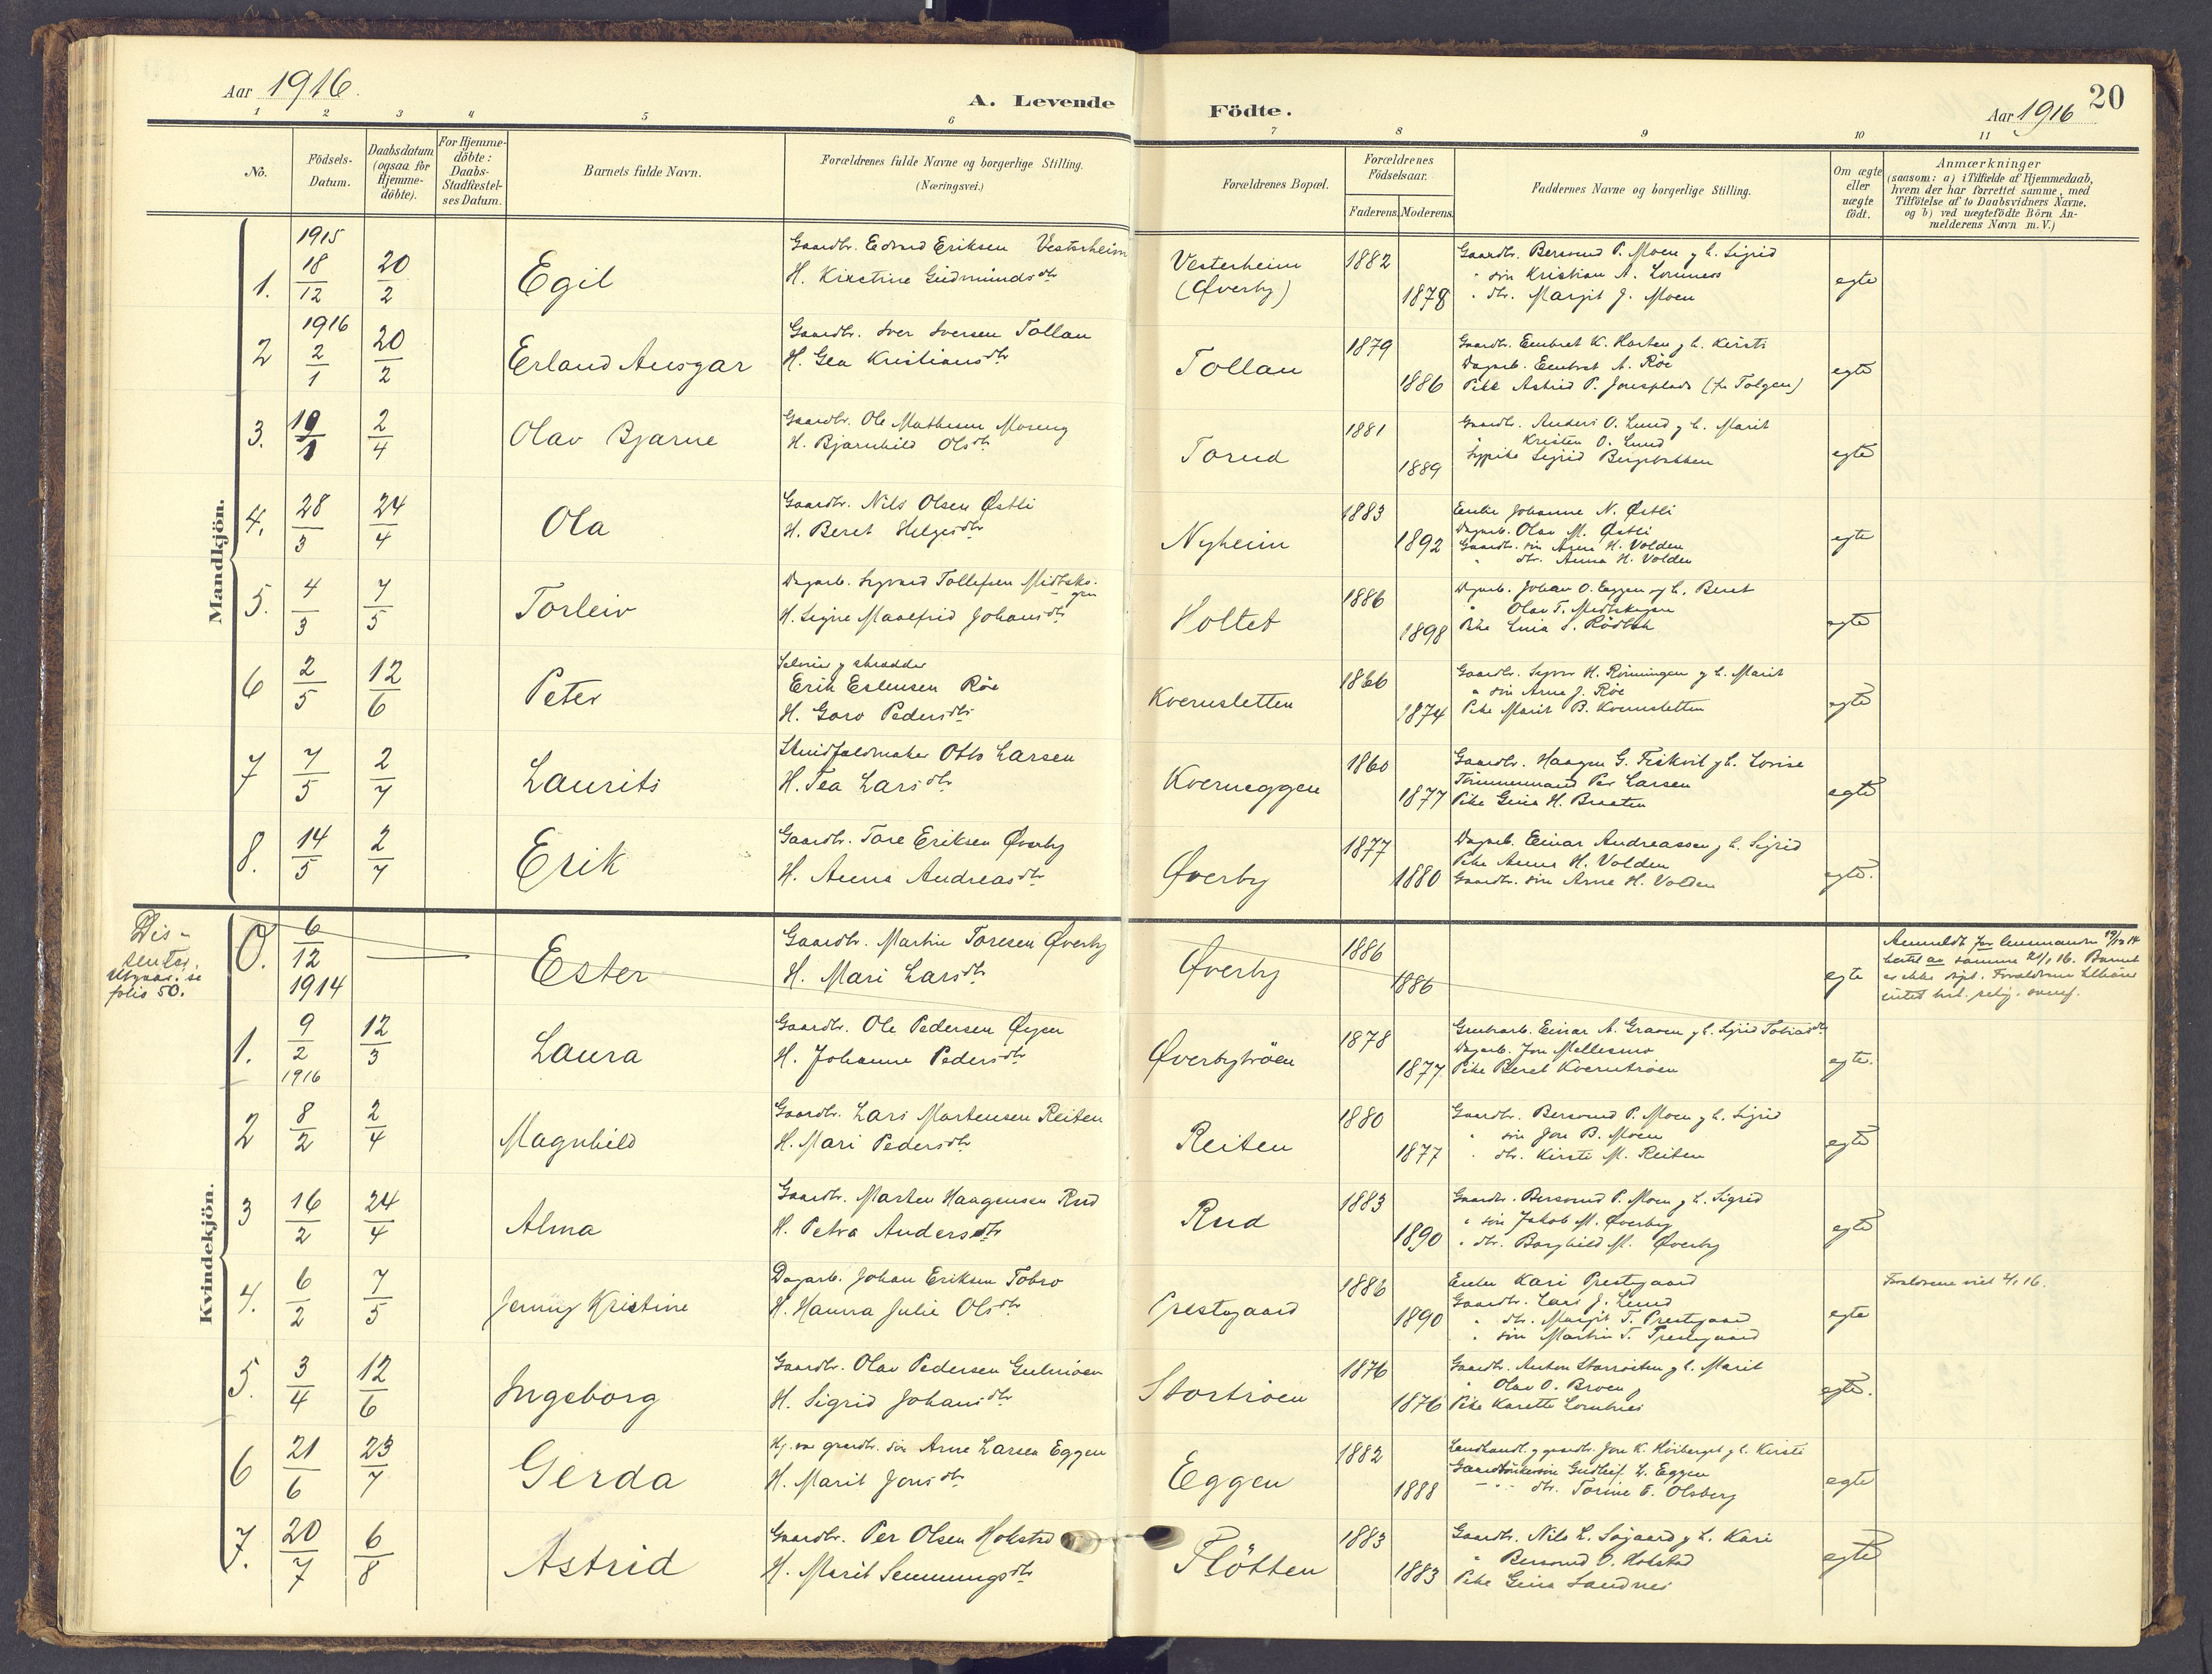 Aar 1916.
A. Levende Födte.
Aar 1916
20
1 2 3 4 5 6 7 8 9 10 11
No.
Födsels-Datum.
Daabsdatum (ogsaa for Hjemme-döbte).
For Hjemme-döbte: Daabs-Stadfæstel-ses Datum.
Barnets fulde Navn.
Forældrenes fulde Navne og borgerlige Stilling.
(Næringsvei.)
Forældrenes Bopæl.
Forældrenes Födselsaar.
Faderens. Moderens.
Faddernes Navne og borgerlige Stilling.
Om ægte eller uægte födt.
Anmærkninger
(saasom: a) i Tilfælde af Hjemmedaab,
hvem der har forrettet samme, med
Tilföielse af to Daabsvidners Navne.
og b) ved uægtefödte Börn An-
melderens Navn m. V.)
Mandkjön.
1. 1915 18/12 20/2 Egil
Gaardbr. Edvard Eriksen Vesterheim
H. Kirstine Gudmundsdtr
Vesterheim (Øverby) 1882 1878
Gaardbr. Bersvend P. Moen g h. Sigrid
" sön Kristian A. Lomnes
" dtr. Margit J. Moen
egte
2 1916 2/1 20/2 Erland Ansgar
Gaardbr. Iver Iversen Tollan
H. Gea Kristiansdtr
Tollan 1879 1886
Gaardbr. Embret K. Horten g h. Kirsti
Dagarb. Embret A. Röe
Pike Astrid P. Jonsplads (fr Tolgen)
egte
3. 19/1 2/4 Olav Bjarne
Gaardbr. Ole Mathisen Moseng
H. Bjarnhild Olsdtr
Torud 1881 1889
Gaardbr. Anders O. Lund g h. Marit
" Kristen O. Lund
Sypike Sigrid Bergebakken
egte
4. 28/3 24/4 Ola
Gaardbr. Nils Olsen Østli
H. Beret Helgesdtr
Nyheim 1883 1892
Enke Johanne N. Østli
Dagarb. Olav M. Østli
Gaardbr. sön Arne H. Volden
" dtr. Anna H. Volden
egte
5. 4/3 7/5 Torleiv
Dagarb. Sigvard Tollefsen Midtsko-gen
H. Signe Maalfrid Johansdtr
Holtet 1886 1898
Dagarb. Johan O. Eggen og h. Beret
" Olav T. Midtskogen
Pike
egte
6 2/5 12/6 Peter
Selveier g skrædder
Erik Eslensen Röe
H. Goro Pedersdtr
Kvernsletten 1866 1874
Gaardbr. Sigvar H. Rönningen g h. Marit
" sön Arne J. Röe
Pike Marit B. Kvernsletten
egte
7 7/5 2/7 Laurits
Skindfeldmaker Otto Larsen
H. Tea Larsdtr
Kverneggen 1860 1877
Gaardbr. Haagen G. Fiskvik g h. Lovise
Tömmermand Per Larsen
Pike Gina H. Braaten
egte
8. 14/5 2/7 Erik
Gaardbr. Tore Eriksen Øverby
H. Anna Andreasdtr
Øverby 1877 1880
Dagarb. Einar Andreassen g h. Sigrid
Pike Anna H. Volden
Gaardbr. sön Arne H. Volden
egte.
Kvindekjön.
Dis-senter. Utgaar: se folio 50.
0. 6/12 1914 Ester
Gaardbr. Martin Toresen Øverby
H. Mari Larsdtr
Øverby 1886 1886
egte
Anmeldt for lensmannen 19/12 14
samme 21/1 16. Barnet
er ikke döpt. Forældrene tilhörer
intet best. relig. samf.
1. 9/2 1916 12/3 Laura
Gaardbr. Ole Pedersen Øyen
H. Johanne Pedersdtr
Øverbytröen 1878 1877
Grubearb. Einar A. Graven g h. Sigrid Tobiasdtr
Dagarb. Jon Mellesmo
Pike Beret Kverntröen
egte.
2 8/2 2/4 Magnhild
Gaardbr. Lars Mortensen Reiten
H. Mari Pedersdtr
Reiten 1880 1877
Gaardbr. Bersvend P. Moen g h. Sigrid
" sön Jon B. Moen
" dtr. Kirsti M. Reiten
egte
3 16/2 24/4 Alma
Gaardbr. Morten Haagensen Rud
H. Petra Andersdtr
Rud 1883 1890
Gaardbr. Bersvend P. Moen g h. Sigrid
" sön Jakob M. Øverby
" dtr. Borghild M. Øverby
egte
4. 6/2 7/5 Jenny Kristine
Dagarb. Johan Eriksen Tobro
H. Hanna Julie Olsdtr
Prestgaard 1886 1890
Enke Kari Prestgaard
Gaardbr. Lars J. Lund
" dtr. Margit T. Prestgaard
" sön Martin T. Prestgaard
egte
Forældrene viet 2/1 16.
5. 3/4 12/6 Ingeborg
Gaardbr. Olav Pedersen Gulmoen
H. Sigrid Johansdtr
Stortröen 1876 1876
Gaardbr. Anton Storröiten g h. Marit
" Olav O. Broen
Pike Karette Lomnes
egte.
6 21/6 23/7 Gerda
Hj. vær. gaardbr. sön Arne Larsen Eggen
H. Marit Jonsdtr
Eggen 1882 1888
Landhandl. g gaardbr. Jon K. Höiberget g h. Kirsti
Gaardbrukersön Gudleif L. Eggen
— " — dtr. Torine E. Olsberg
egte
7. 20/7 6/8 Astrid
Gaardbr. Per Olsen Holstad
H. Marit Semmingsdtr
Flötten 1883 1883
Gaardbr. Nils L. Söjaard g h. Kari
" Bersvend O. Holstad
Pike Gina Sandnes
egte